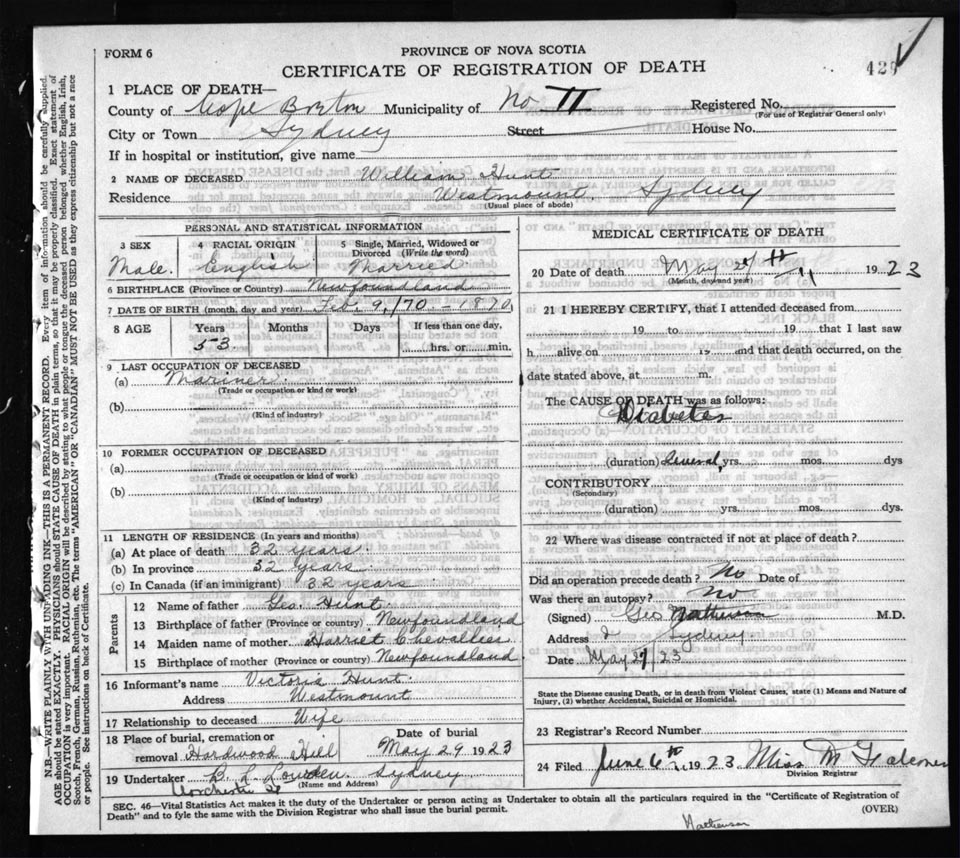 FORM 6
PROVINCE OF NOVA SCOTIA
CERTIFICATE OF REGISTRATION OF DEATH
429
1 PLACE OF DEATH—
County of Cape Breton Municipality of No II Registered No.
(For use of Registrar General only)
City or Town Sydney Street House No.
If in hospital or institution, give name
2 NAME OF DECEASED William Hunt
Residence Westmount, Sydney
(Usual place of abode)
PERSONAL AND STATISTICAL INFORMATION
3 SEX
Male.
4 RACIAL ORIGIN
English
5 Single, Married, Widowed or Divorced (Write the word)
Married
6 BIRTHPLACE (Province or Country) Newfoundland
7 DATE OF BIRTH (month, day and year) Feb. 9, /70 - 1870
8 AGE Years Months Days If less than one day,
53 hrs. or min.
9 LAST OCCUPATION OF DECEASED
(a) Mariner.
(Trade or occupation or kind or work)
(b)
(Kind of industry)
10 FORMER OCCUPATION OF DECEASED
(a)
(Trade or occupation or kind of work)
(b)
(Kind of industry)
11 LENGTH OF RESIDENCE (In years and months)
(a) At place of death 32 years.
(b) In province 32 years.
(c) In Canada (if an immigrant) 32 years
Parents
12 Name of father Geo. Hunt
13 Birthplace of father (Province or country) Newfoundland
14 Maiden name of mother Harriet Chevallies
15 Birthplace of mother (Province or country) Newfoundland.
16 Informant's name Victoria Hunt.
Address Westmount.
17 Relationship to deceased Wife
18 Place of burial, cremation or removal Hardwood Hill
Date of burial
May 29 1923
19 Undertaker Sydney
(Name and Address)
MEDICAL CERTIFICATE OF DEATH
20 Date of death May 27 th 1923
(Month, day and year)
21 I HEREBY CERTIFY, that I attended deceased from
19 to 19 that I last saw
h alive on 19 and that death occurred, on the
date stated above, at m.
The CAUSE OF DEATH was as follows:
Diabetes
(duration) Several yrs. mos. dys
CONTRIBUTORY
(Secondary)
(duration) yrs. mos. dys.
22 Where was disease contracted if not at place of death?
Did an operation precede death? No Date of
Was there an autopsy? No
(Signed) Geo Mathewson M.D.
Address Sydney
Date May 27/23
State the Disease causing Death, or in death from Violent Causes, state (1) Means and Nature of Injury, (2) whether Accidental, Suicidal or Homicidal.
23 Registrar's Record Number
24 Filed June 6 th 1923 Miss M Falconer
Division Registrar
SEC. 46—Vital Statistics Act makes it the duty of the Undertaker or person acting as Undertaker to obtain all the particulars required in the "Certificate of Registration of
Death" and to fyle the same with the Division Registrar who shall issue the burial permit.
(OVER)
N.B.—WRITE PLAINLY WITH UNFADING INK—THIS IS A PERMANENT RECORD. Every item of information should be carefully supplied.
AGE should be stated EXACTLY. PHYSICIANS should STATE CAUSE OF DEATH in plain terms, so that it may be properly classified. Exact statement of
OCCUPATION is very important. RACIAL ORIGIN will be described by stating to what people or tongue the deceased person belonged whether English, Irish,
Scotch, French, German, Russian, Ruthenian, etc. The terms "AMERICAN" OR "CANADIAN" MUST NOT BE USED as they express citizenship but not a race
or people. See instructions on back of Certificate.